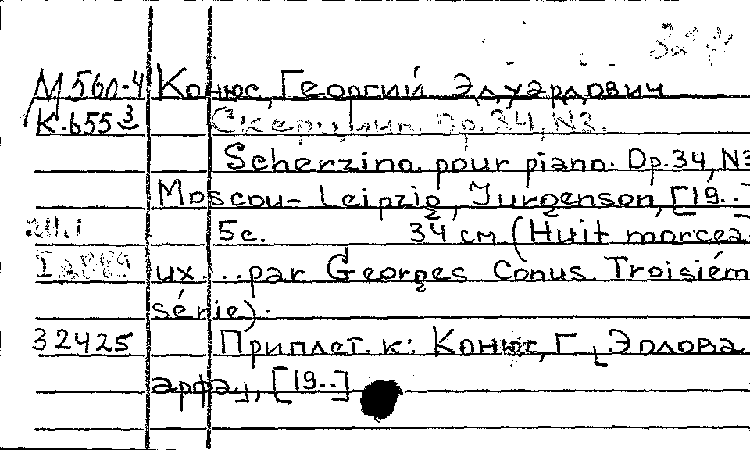 М560-4 Конюс, Георгий Эдуардович
К.655 3 [Скерцино. Op. 34, N3.
Scherzino pour piano. Op. 34, N3
Moscou-Leipzig, Jurgenson, [19..
5с. 34 см (Huit morcea
ux... par Georges Conus Troisiém
série).
32425 Приплет. к: Конюс, Г. [Эолова
арфа], [19..]